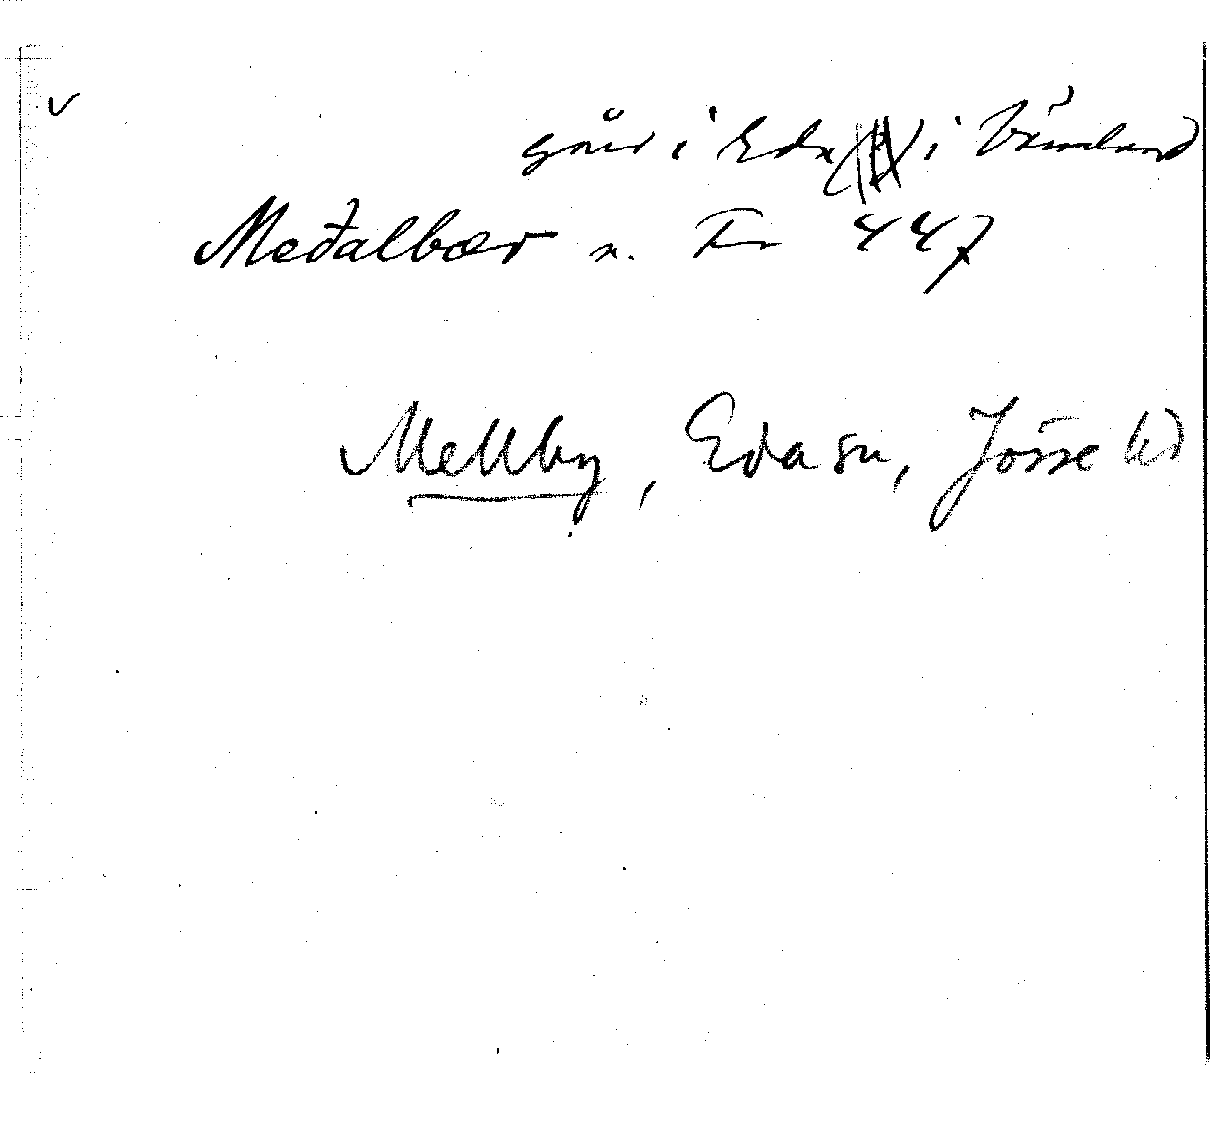 gård i Eda i Värmland
Meðalbœr n. Fr 447
Mellby, Eda sn, Jösse hd